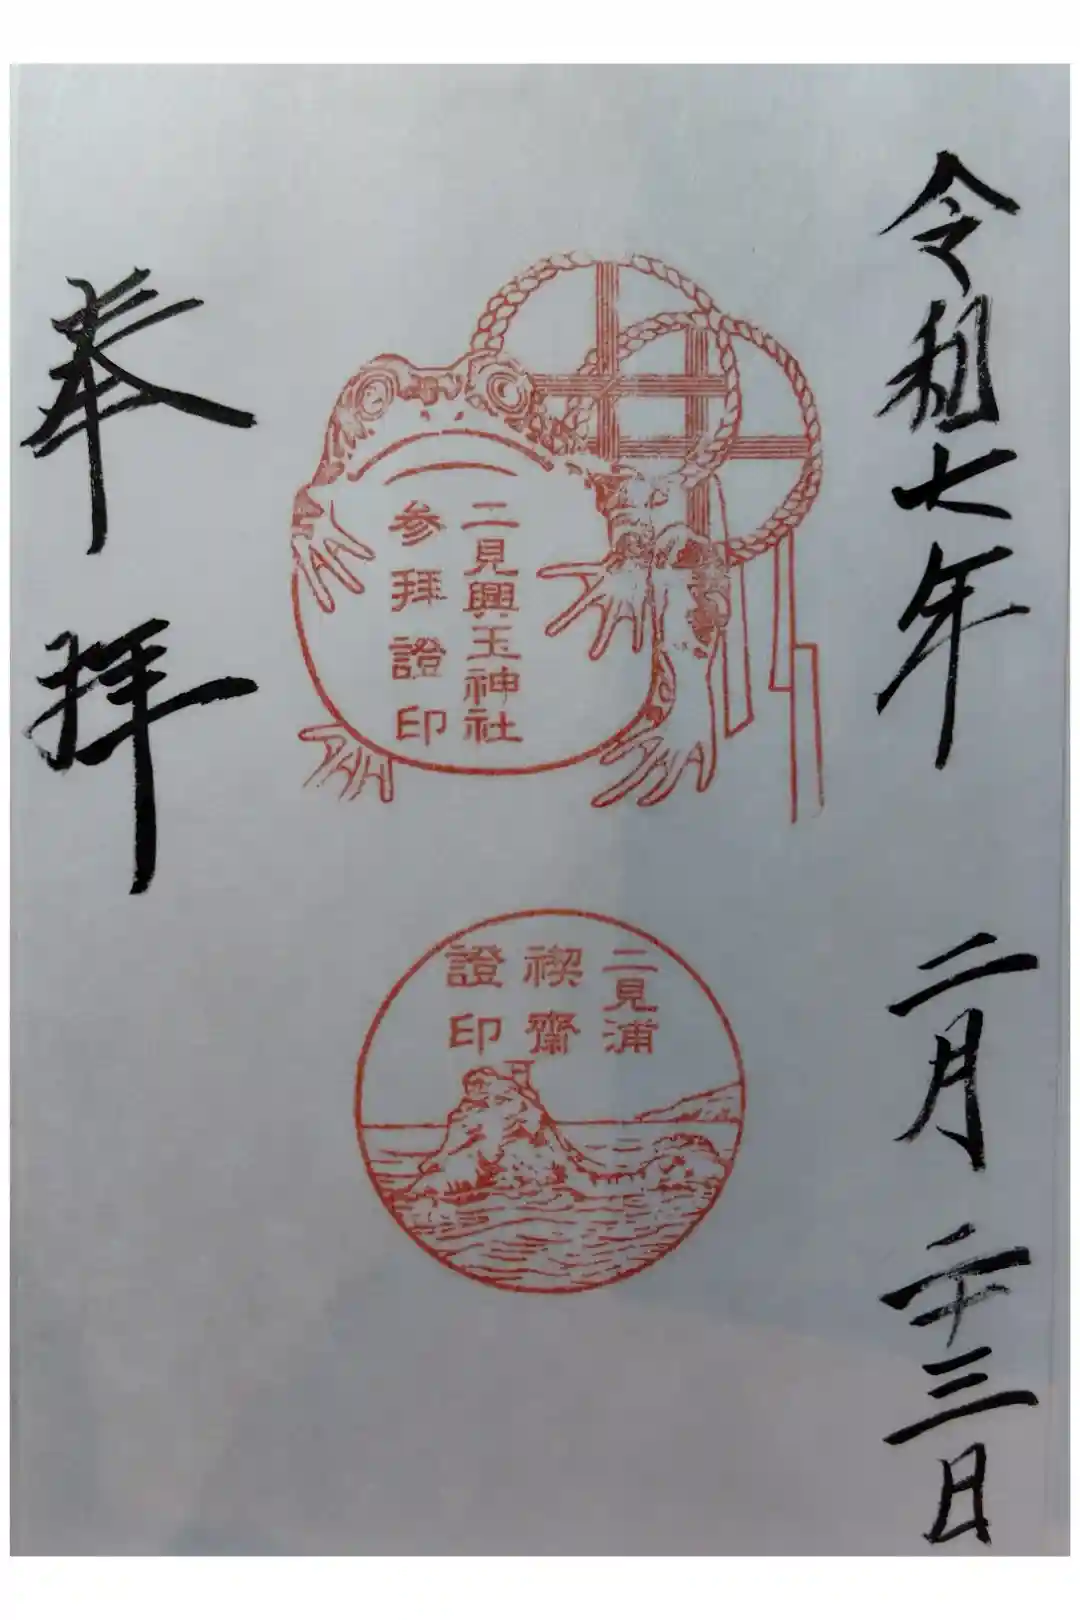 令和七年 二月 二十三日
二見興玉神社
参拜證印
二見浦
禊齋
證印
奉拜